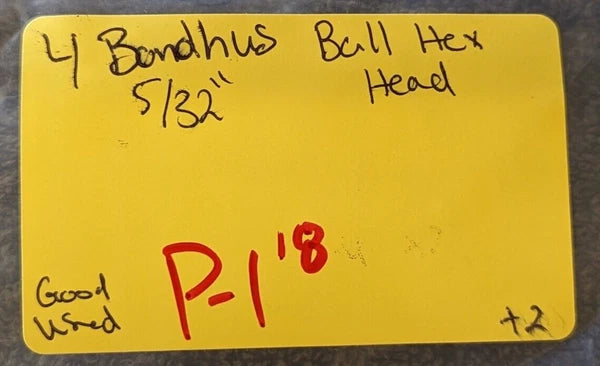 4 Bondhus Ball Hex
5/32" Head
P-1'8
Good
Used
+2